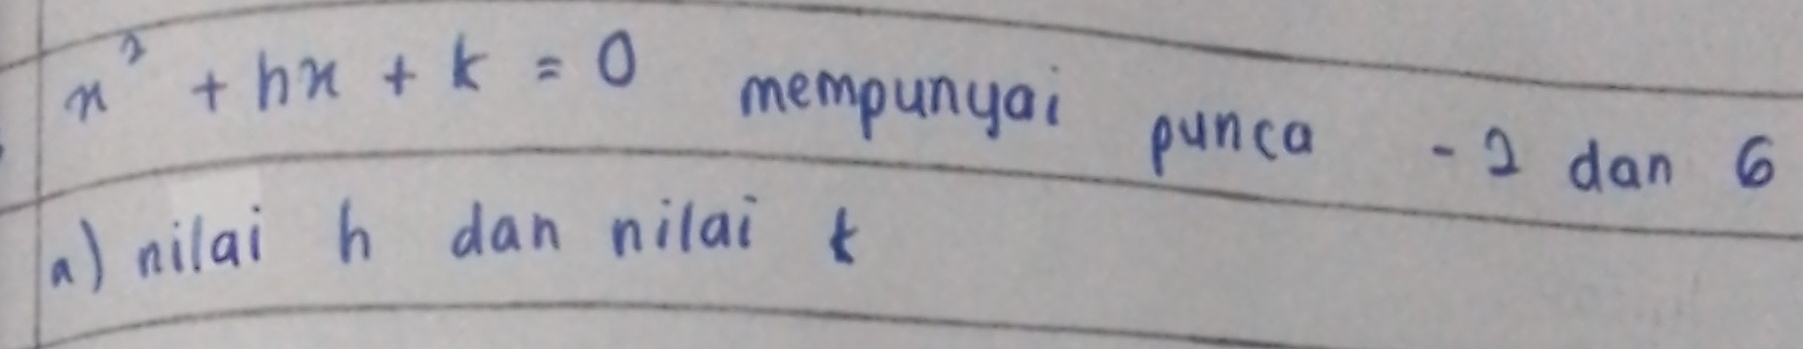 x² + hx + k = 0 mempunyai punca -2 dan 6
a) nilai h dan nilai k